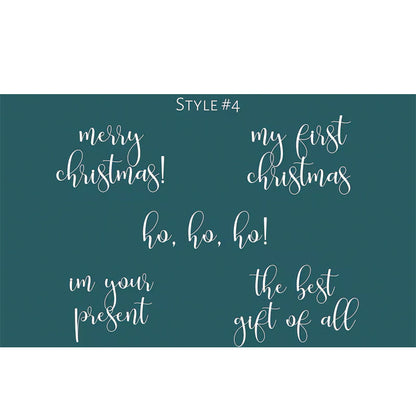 STYLE #4
merry
christmas!
my first
christmas
ho, ho, ho!
im your
present
the best
gift of all